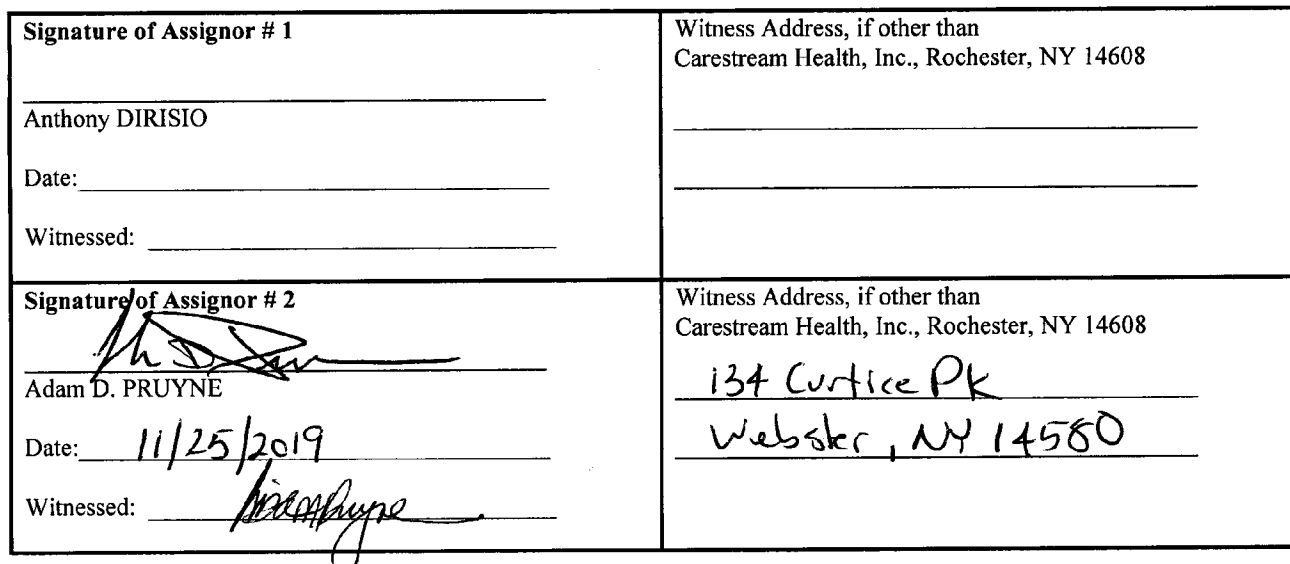 Signature of Assignor # 1
Anthony DIRISIO
Date:
Witnessed:
Witness Address, if other than
Carestream Health, Inc., Rochester, NY 14608
Signature of Assignor # 2
Adam D. PRUYNE
Date: 11/25/2019
Witnessed:
Witness Address, if other than
Carestream Health, Inc., Rochester, NY 14608
134 Curtice Pk
Webster, NY 14580